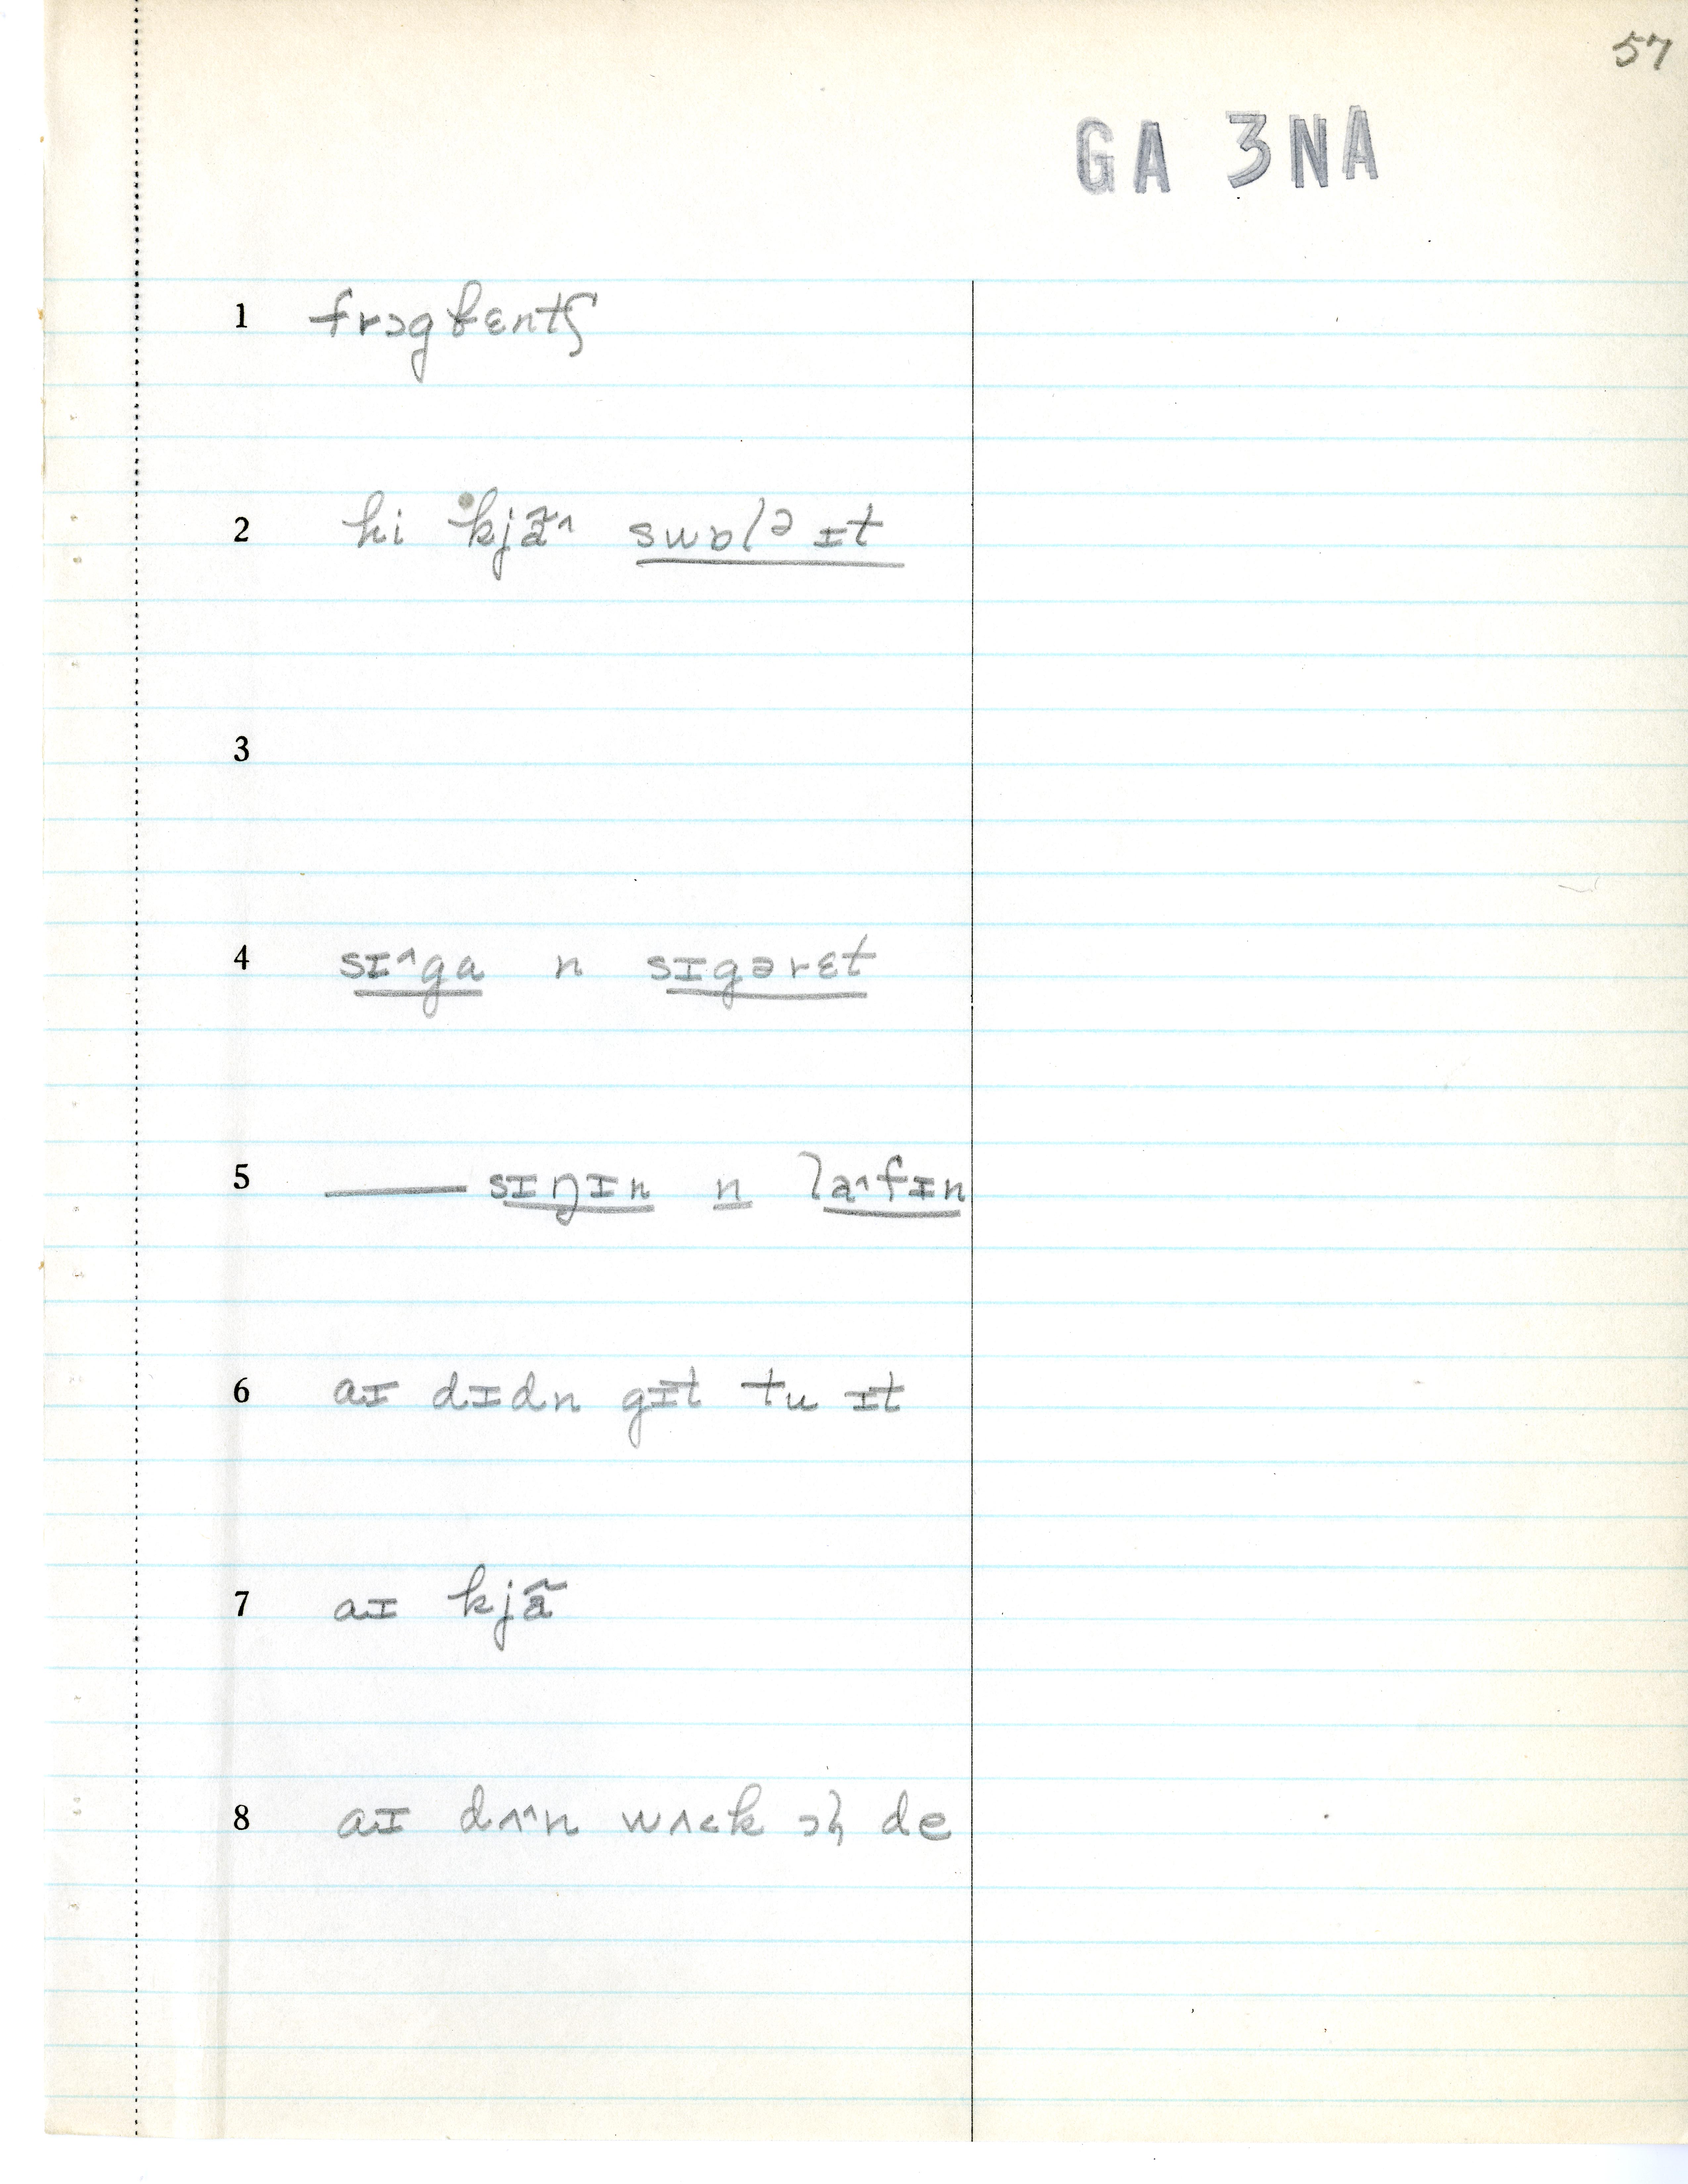 57
GA 3NA
1 frɔgɓɛntʃ
2 hi kjã^ swɒlᵊ ɪt
3
4 sɪ^ga n sɪgərɛt
5 —— sɪŋɪn n la^fɪn
6 aɪ dɪdn gɪt tu ɪt
7 aɪ kjã
8 aɪ dʌ^n wʌ<k ɔɫ de